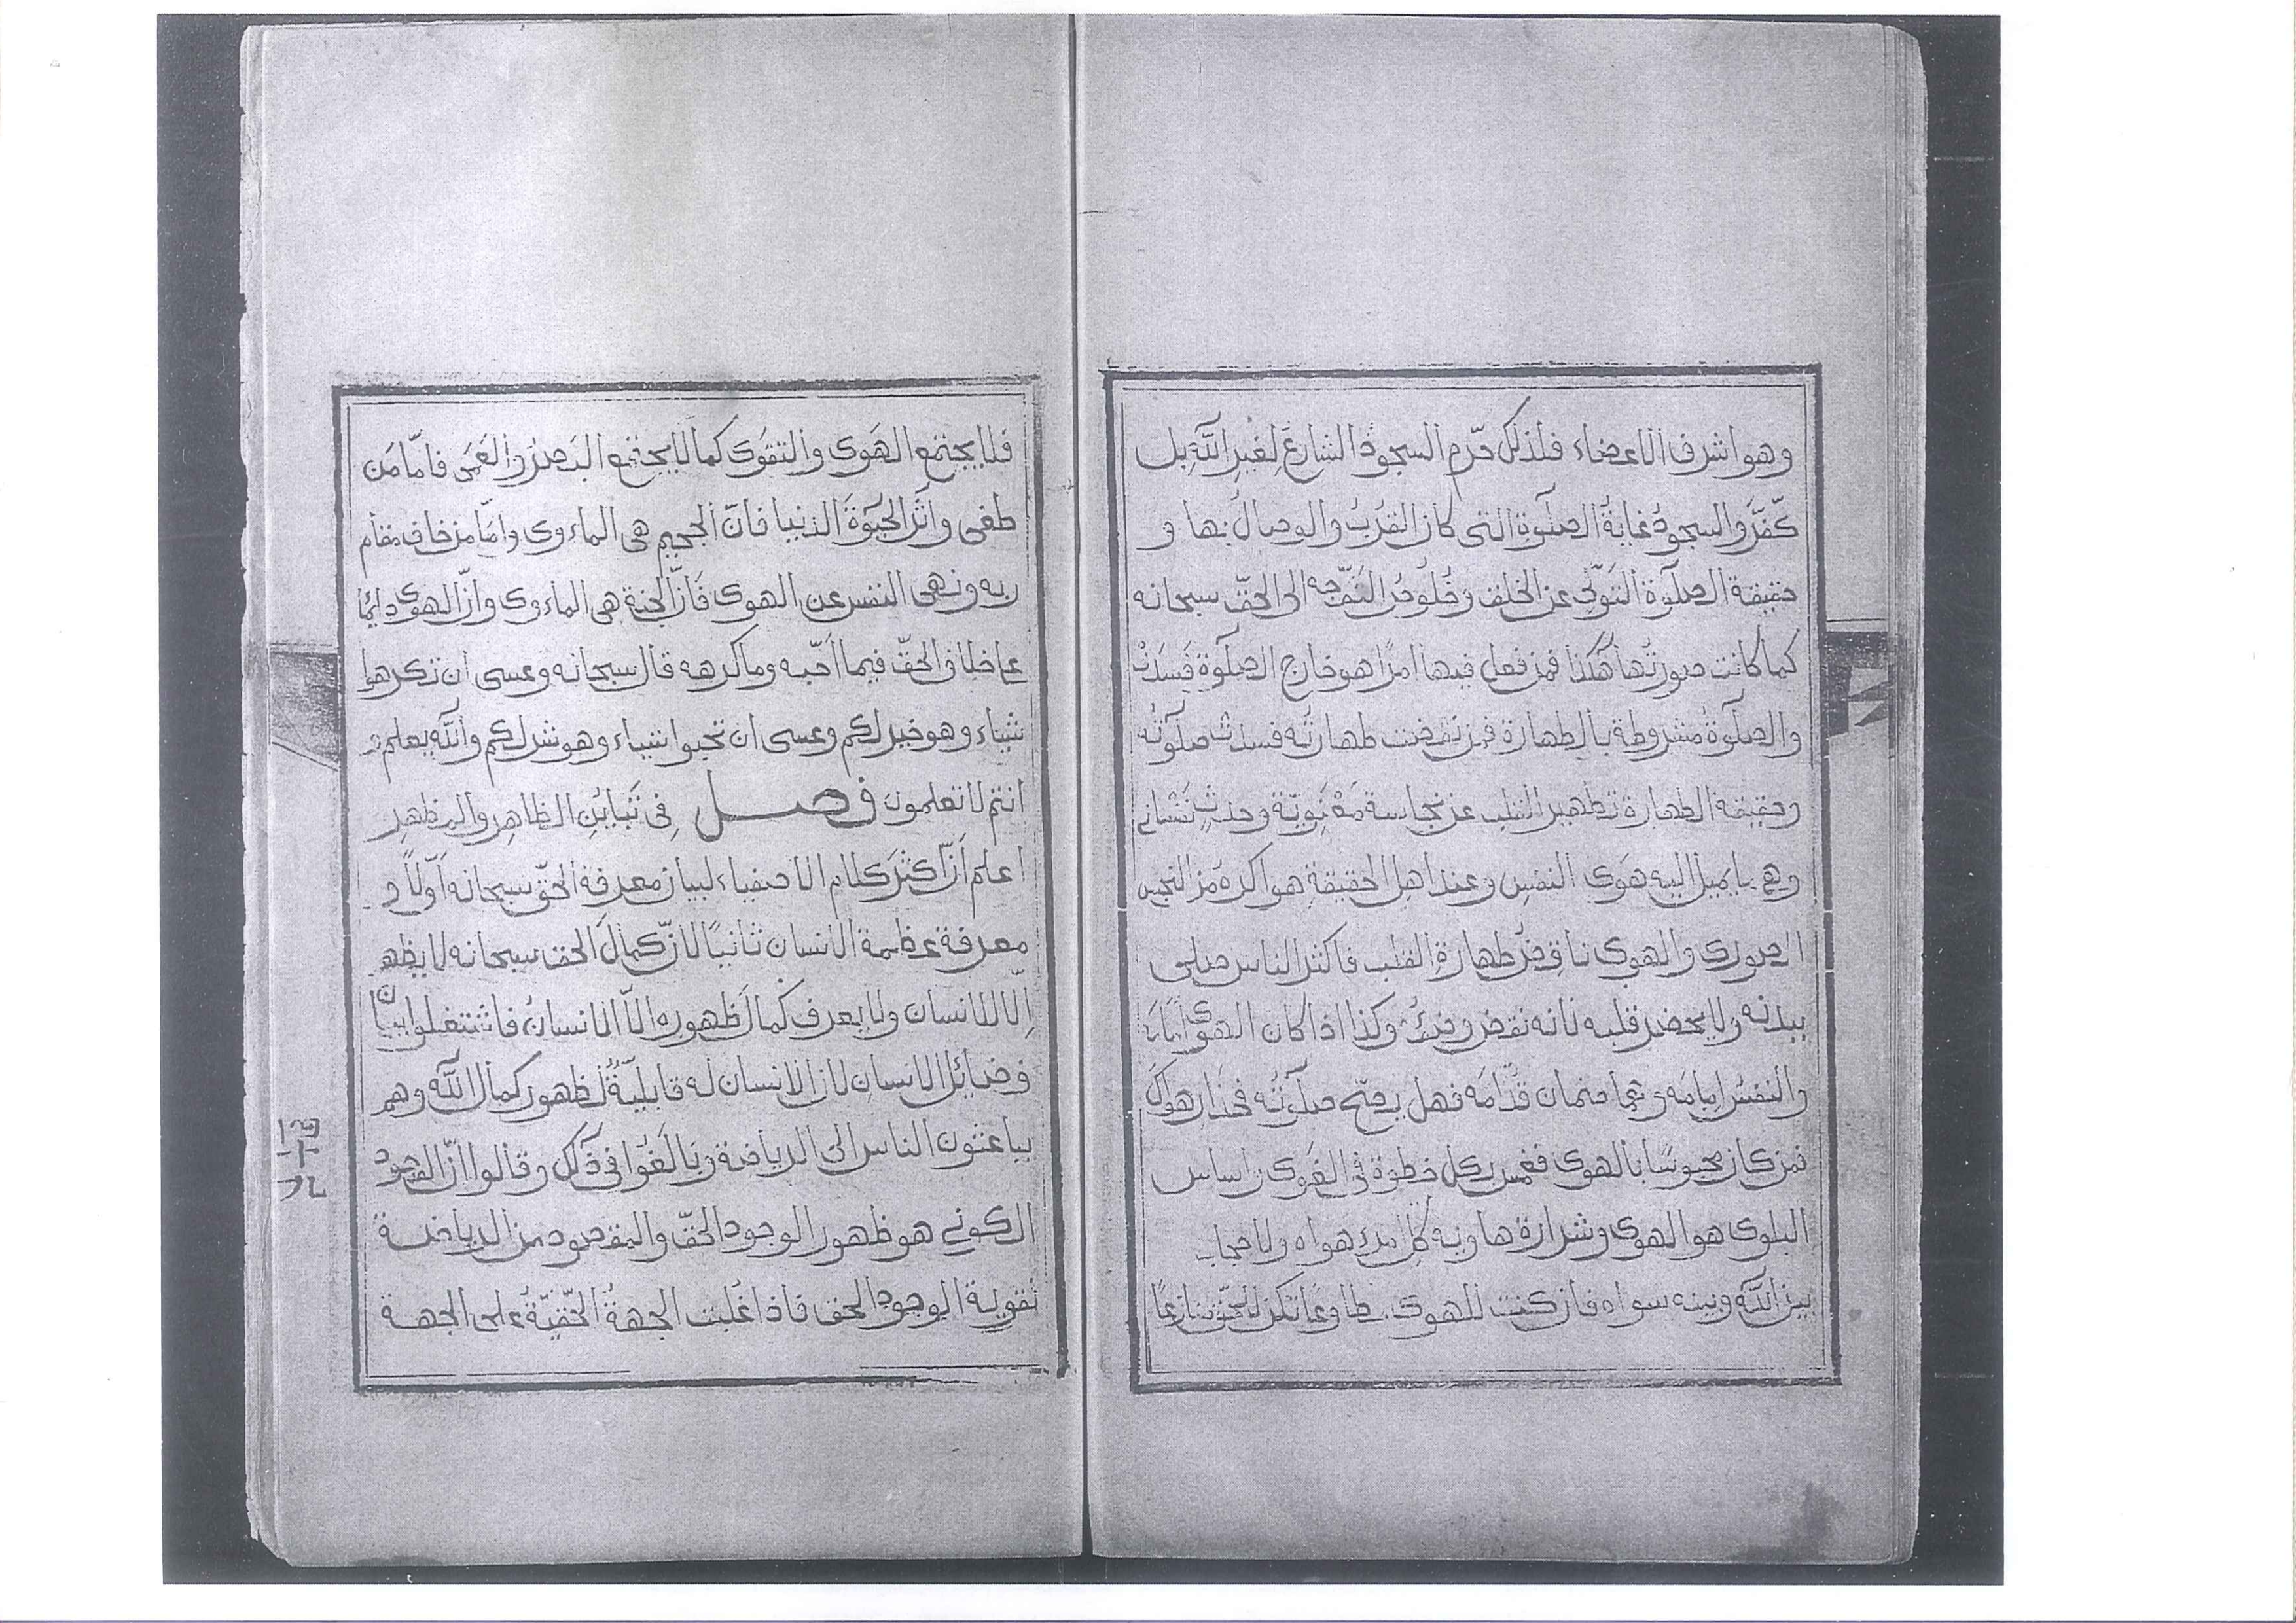 وهو اشرف الاعضاء فلذلك حرّم السجود الشارع لغير الله بل
كفّر والسجود غاية الصلوة التى كان القرب والوصال بها و
حقيقة الصلوة التولّي عن الخلق وخلوص التوجّه الى الحقّ سبحانه
كما كانت صورتها هكذا فمن فعل فيها امرًا هو خارج الصلوة فسدت
والصلوة مشروطة بالطهارة فمن نقضت طهارته فسدت صلوته
وحقيقة الطهارة تطهير القلب عن نجاسة معنويّة وحدث نفسانى
وهى ما يميل اليه هوى النفس وعند اهل الحقيقة هو اكره من النجس
الصورى والهوى ناقض طهارة القلب فاكثر الناس صلى
ببدنه ولا يحضر قلبه لانه نقض وضوء وكذا اذا كان الهوى
والنفس امامه وهما صنمان قدّامه فهل يصحّ صلوته فحذار هواك
فمن كان محبوسًا بالهوى بكل خطوة فى الغوى اساس
البلوى هو الهوى وشرارة هاوية كل هواه ولا حجاب
بين الله وبينه سواه فان كنت للهوى مطاوعًا تكن للحق منازعًا
فلا يجتمع الهوى والتقوى كما لا يجتمع البصر والعمى فامّا من
طغى وآثر الحيوة الدنيا فانّ الجحيم هى الماءوى وامّا من خاف مقام
ربه ونهى النفس عن الهوى فانّ الجنة هى الماءوى وانّ الهوى دايمًا
على خلاف الحقّ فيما احبّه وما كرهه قال سبحانه وعسى ان تكرهوا
شيئاء وهو خير لكم وعسى ان تحبوا شيئاء وهو شر لكم والله يعلم و
انتم لا تعلمون فصل فى تباين الظاهر والمظهر
اعلم انّ اكثر كلام الاصفياء لبيان معرفة الحق سبحانه اوّلاً و
معرفة عظمة الانسان ثانيًا لانّ كمال الحق سبحانه لا يظهر
الّا للانسان ولا يعرف كمال ظهوره الاّ الانسان فاشتغلوا ببيان
فضائل الانسان لان الانسان له قابليّة لظهور كمال الله وهم
يباعثون الناس الى الرياضة وبالغوا فى ذلك وقالوا انّ المقصود
الكونى هو ظهور الوجود الحقّ والمقصود من الرياضة
تقوية الوجود الحق فاذا غلبت الجهة الحقّيّة على الجهة